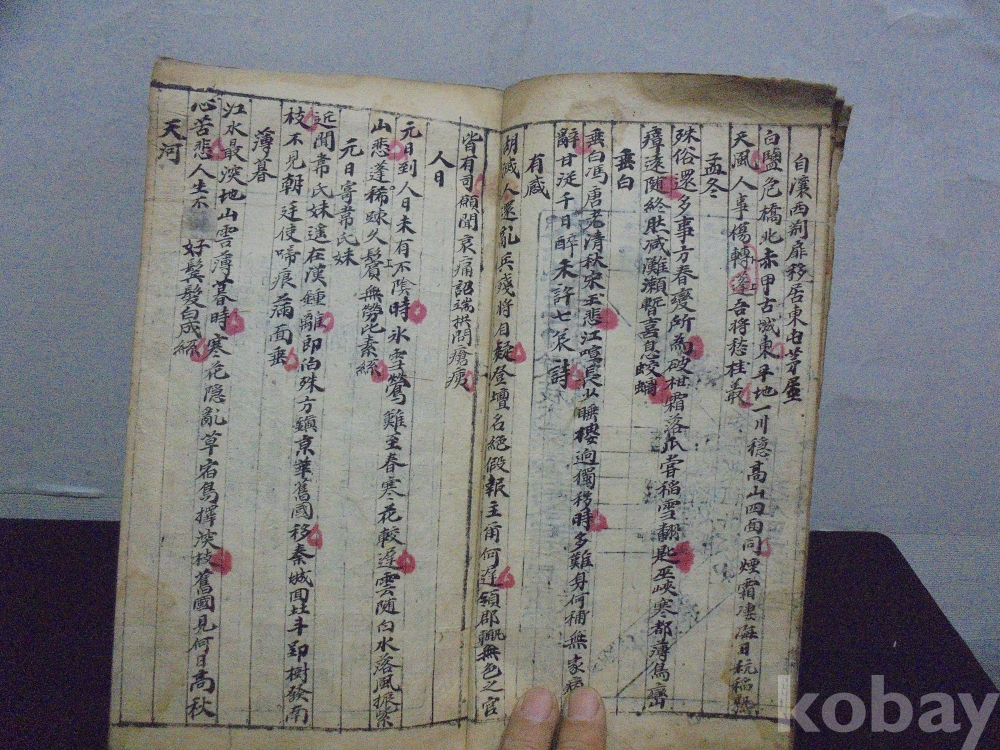 自瀼西荊扉移居東屯茅屋
白鹽危橋北赤甲古城東平地一川穩高山四面同煙霜凄日秔稻熟
天風人事傷轉蓬吾將愁桂叢
孟冬
殊俗還多事方春變所為破柑霜落爪嘗稻雪翻匙巫峽寒都薄烏蠻
瘴遠隨終然减灘瀨暫喜息蛟螭
垂白
垂白馮唐老清秋宋玉悲江喧長少睡樓迥獨移時多難身何補無家病
辭甘從千日醉未許七哀詩
有感
胡滅人還亂兵殘將自疑登壇名絕假報主爾何遲領郡輒無色之官
皆有司願聞哀痛詔端拱問瘡痍
人日
元日到人日未有不陰時氷雪鶯難至春寒花較遲雲隨白水落風振紫
山悲蓬稀疎久鬢無勞比素絲
元日寄韋氏妹
近聞韋氏妹遠在漢鍾離郎伯殊方鎮京華舊國移秦城回北斗郢樹發南
枝不見朝廷使啼痕滿面垂
薄暮
江水最深地山雲薄暮時寒花隱亂草宿鳥擇深枝舊國見何日高秋
心苦悲人生不好鬢髮白成絲
天河
kobay